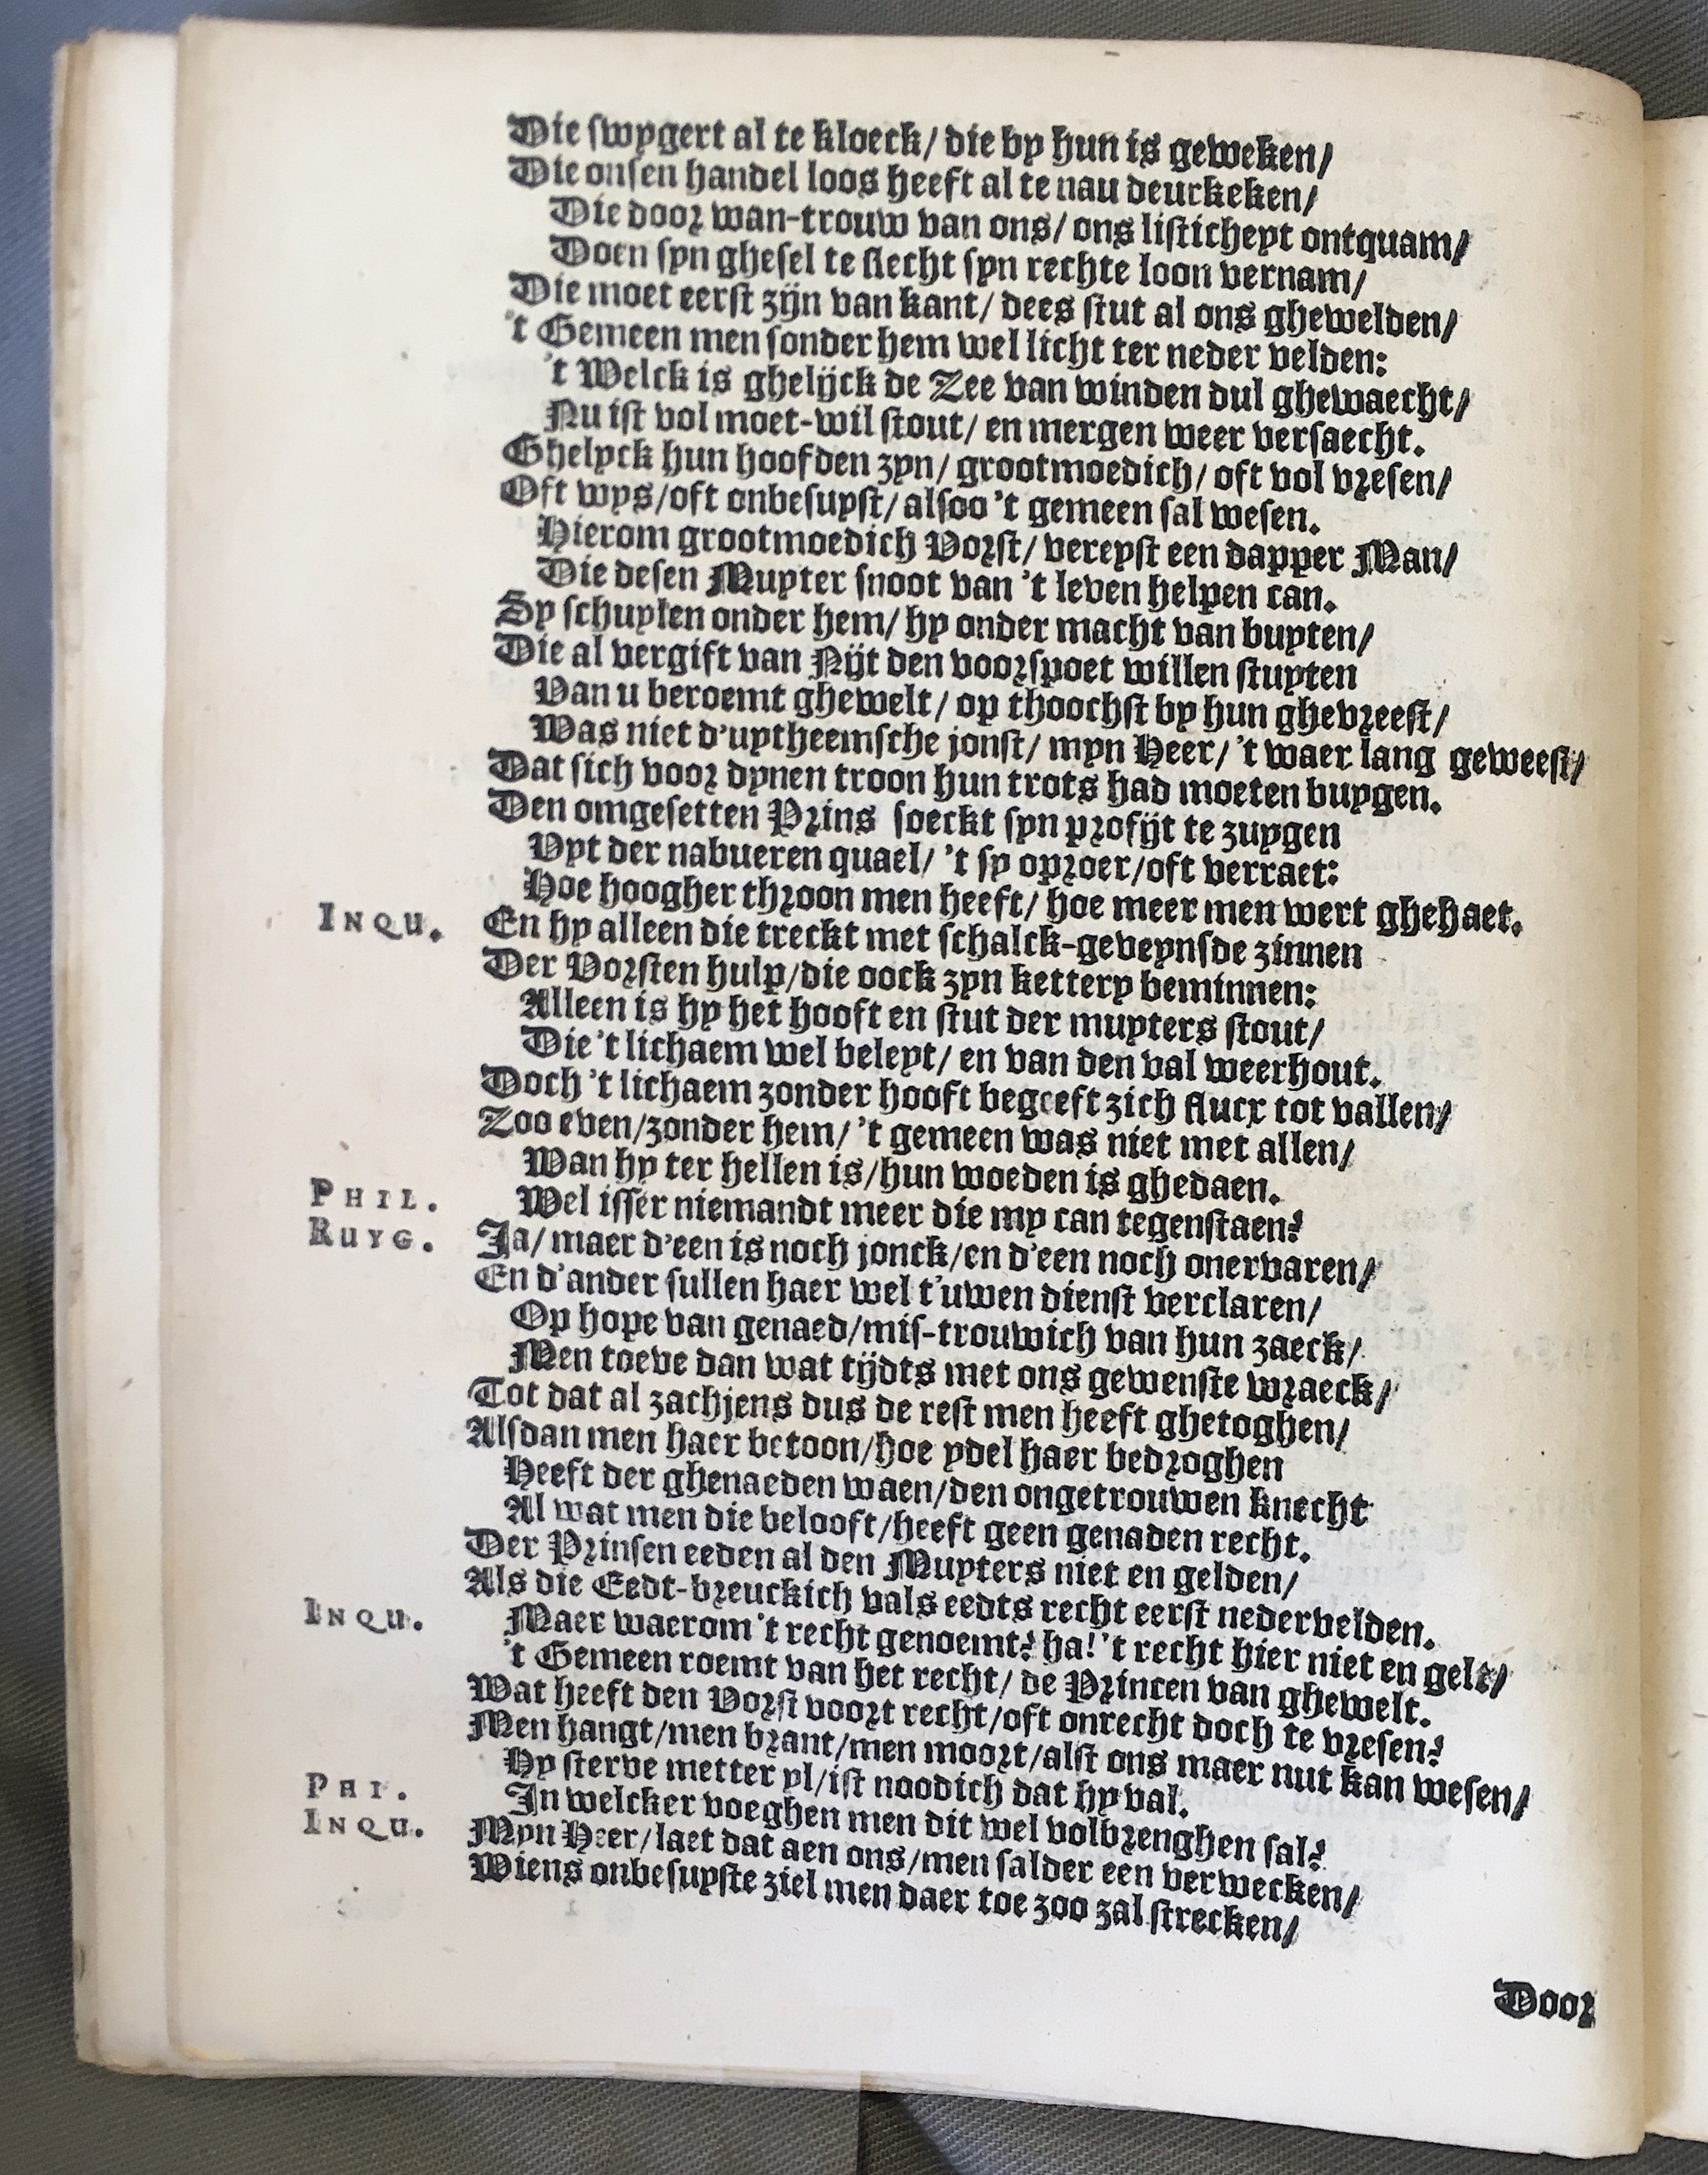 Die swygert al te kloeck/ die by hun is geweken/
Die onsen handel loos heeft al te nau deurkeken/
Die door wan-trouw van ons/ ons listicheyt ontquam/
Doen syn ghesel te slecht syn rechte loon vernam/
Die moet eerst zijn van kant/ dees stut al ons ghewelden/
't Gemeen men sonder hem wel licht ter neder velden:
't Welck is ghelijck de Zee van winden dul ghewaecht/
Nu ist vol moet-wil stout/ en mergen weer versaecht.
Ghelyck hun hoofden zyn/ grootmoedich/ oft vol vresen/
Oft wys/oft onbesuyst/ alsoo 't gemeen sal wesen.
Hierom grootmoedich Vorst/ vereyst een dapper Man/
Die desen Muyter snoot van 't leven helpen can.
Sy schuylen onder hem/ hy onder macht van buyten/
Die al vergift van Nijt den voorspoet willen stuyten
Van u beroemt ghewelt/ op thoochst by hun ghevreest/
Was niet d'uytheemsche jonst/ myn Heer/ 't waer lang geweest/
Dat sich voor dynen troon hun trots had moeten buygen.
Den omgesetten Prins soeckt syn profijt te zuygen
Vyt der nabueren quael/ 't sy oproer/oft verraet:
Hoe hoogher throon men heeft/ hoe meer men wert ghehaet.
INQU. En hy alleen die treckt met schalck-geveynsde zinnen
Der Vorsten hulp/die oock zyn kettery beminnen:
Alleen is hy het hooft en stut der muyters stout/
Die 't lichaem wel beleyt/ en van den val weerhout.
Doch 't lichaem zonder hooft begeeft zich flucx tot vallen/
Zoo even/zonder hem/ 't gemeen was niet met allen/
Wan hy ter hellen is/hun woeden is ghedaen.
PHIL. Wel isser niemandt meer die my can tegenstaen?
RUYG. Ja/ maer d'een is noch jonck/en d'een noch onervaren/
En d'ander sullen haer wel t'uwen dienst verclaren/
Op hope van genaed/mis-trouwich van hun zaeck/
Men toeve dan wat tijdts met ons gewenste wraeck/
Tot dat al zachjens dus de rest men heeft ghetoghen/
Alsdan men haer betoon/hoe ydel haer bedroghen
Heeft der ghenaeden waen/den ongetrouwen knecht
Al wat men die belooft/heeft geen genaden recht.
Der Prinsen eeden al den Muyters niet en gelden/
Als die Eedt-breuckich vals eedts recht eerst nedervelden.
INQU. Maer waerom 't recht genoemt? ha! 't recht hier niet en gelt/
't Gemeen roemt van het recht/ de Princen van ghewelt.
Wat heeft den Vorst voort recht/oft onrecht doch te vresen?
Men hangt/men brant/men moort/alst ons maer nut kan wesen/
Hy sterve metter yl/ist noodich dat hy val.
PHI. In welcker voeghen men dit wel volbrenghen sal?
INQU. Myn Heer/laet dat aen ons/men salder een verwecken/
Wiens onbesuyste ziel men daer toe zoo zal strecken/
Door